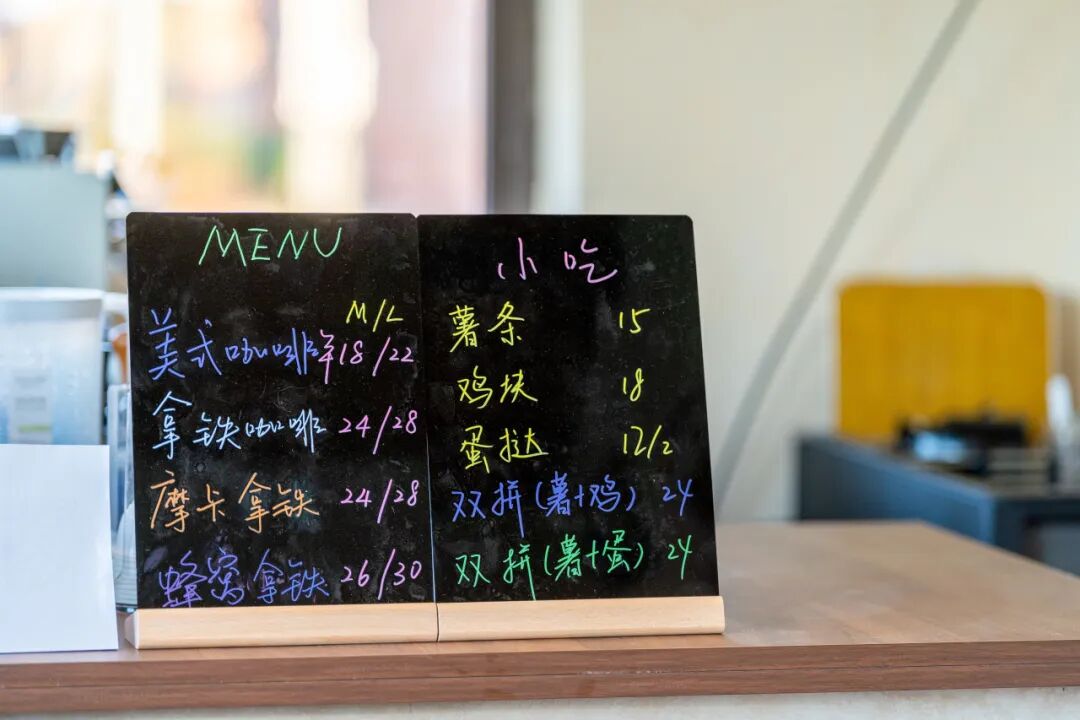 MENU
M/L
美式咖啡 ¥18/22
拿铁咖啡 24/28
摩卡拿铁 24/28
蜂窝拿铁 26/30
小吃
薯条 15
鸡块 18
蛋挞 12/2
双拼(薯+鸡) 24
双拼(薯+蛋) 24